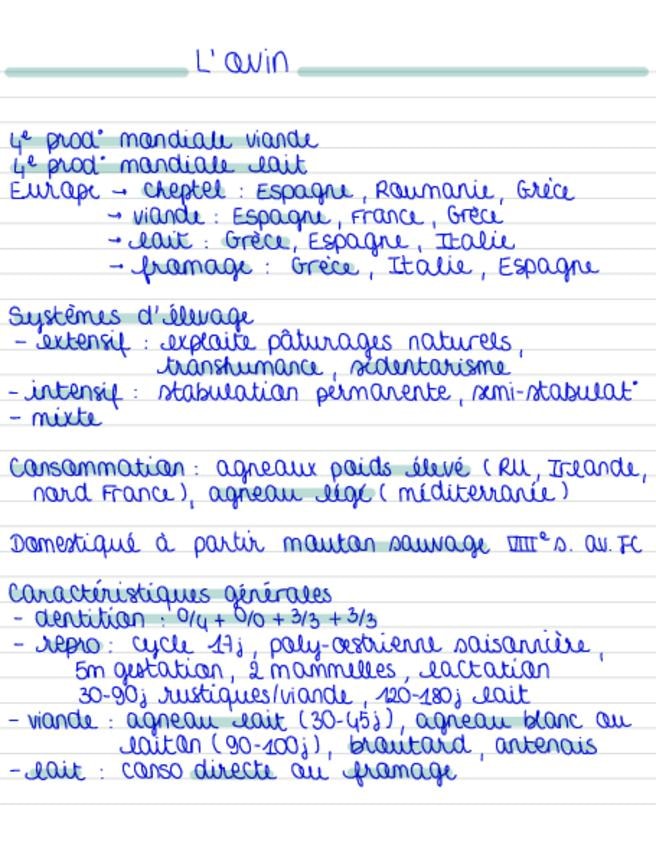 L'ovin
4e prod° mondiale viande
4e prod° mondiale lait
Europe → cheptel : Espagne, Roumanie, Grèce
→ viande : Espagne, France, Grèce
→ lait : Grèce, Espagne, Italie
→ fromage : Grèce, Italie, Espagne
Systèmes d'élevage
- extensif : exploite pâturages naturels,
transhumance, sédentarisme
- intensif : stabulation permanente, semi-stabulat°
- mixte
Consommation : agneaux poids élevé (RU, Irelande,
nord France), agneau légé (méditerranée)
Domestiqué à partir mouton sauvage VIIIe s. av. JC
Caractéristiques générales
- dentition : 0/4 + 0/0 + 3/3 + 3/3
- repro : cycle 17j, poly-œstrienne saisonnière,
5m gestation, 2 mammelles, lactation
30-90j rustiques/viande, 120-180j lait
- viande : agneau lait (30-45j), agneau blanc ou
laiton (90-100j), broutard, antenais
- lait : conso directe ou fromage